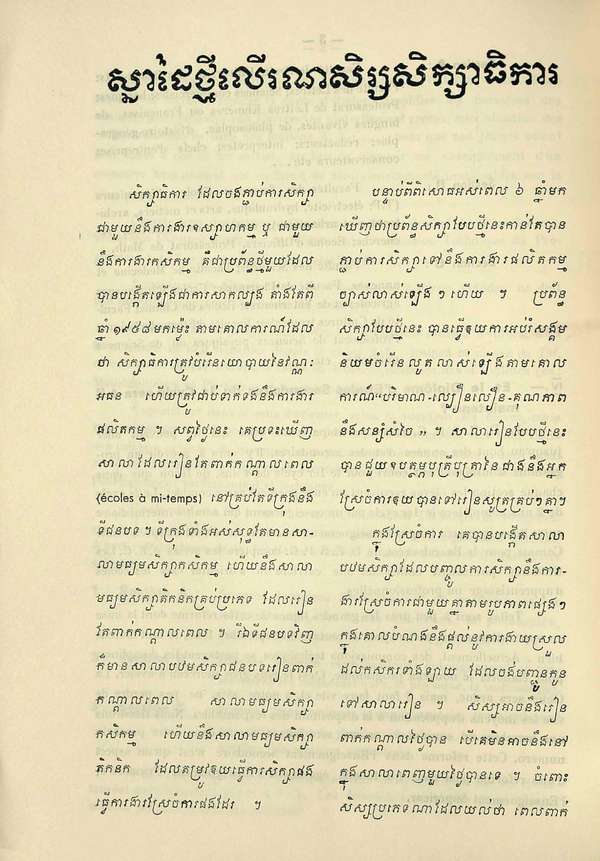 ស្នាដៃថ្មីលើរណសិរ្សសិក្សាធិការ
សិក្សាធិការ ដែលចងភ្ជាប់ការសិក្សា
ជាមួយនឹងការងារឧស្សាហកម្ម ឬ ជាមួយ
នឹងការងារកសិកម្ម គឺជាប្រព័ន្ធថ្មីមួយដែល
បានបង្កើតឡើងជាការសាកល្បង តាំងតែពី
ឆ្នាំ ១៩៥៨មកម្ល៉េះ តាមគោលការណ៍ដែល
ថា សិក្សាធិការត្រូវបំរើនយោបាយនៃវណ្ណៈ
អធន ហើយត្រូវជាប់ទាក់ទងនឹងការងារ
ផលិតកម្ម ។ សព្វថ្ងៃនេះ គេប្រទះឃើញ
សាលាដែលរៀនតែពាក់កណ្តាលពេល
(écoles à mi-temps) នៅគ្រប់តែទីក្រុងនឹង
ទីជនបទ ។ ទីក្រុងទាំងអស់សុទ្ធតែមានសា-
លាមធ្យមសិក្សាកសិកម្ម ហើយនឹងសាលា
មធ្យមសិក្សាតិកនិកគ្រប់ប្រភេទ ដែលរៀន
តែពាក់កណ្តាលពេល ។ រីឯទីជនបទវិញ
ក៏មានសាលាបឋមសិក្សាជនបទរៀនពាក់
កណ្តាលពេល សាលាមធ្យមសិក្សា
កសិកម្ម ហើយនឹងសាលាមធ្យមសិក្សា
តិកនិក ដែលតម្រូវឲ្យធ្វើការសិក្សាផង
ធ្វើការងារស្រែចំការផងដែរ ។
បន្ទាប់ពីពិសោធអស់ពេល ៦ ឆ្នាំមក
ឃើញថាប្រព័ន្ធសិក្សាបែបថ្មីនេះកាន់តែបាន
ភ្ជាប់ការសិក្សាទៅនឹងការងារផលិតកម្ម
ច្បាស់លាស់ឡើង ៗ ហើយ ។ ប្រព័ន្ធ
សិក្សាបែបថ្មីនេះ បានធ្វើឲ្យការអប់រំសង្គម
និយមចំរើនលូតលាស់ឡើងតាមគោល
ការណ៍“បរិមាណ-ល្បឿនលឿន-គុណភាព
នឹងសន្សំសំចៃ” ។ សាលារៀនបែបថ្មីនេះ
បានជួយឧបត្ថម្ភបុត្រីបុត្រានៃជាងនឹងអ្នក
ស្រែចំការឲ្យបានទៅរៀនសូត្រគ្រប់ៗគ្នា។
ក្នុងស្រែចំការ គេបានបង្កើតសាលា
បឋមសិក្សាដែលបញ្ចូលការសិក្សានឹងការ-
ងារស្រែចំការជាមួយគ្នាតាមរូបភាពផ្សេងៗ
ក្នុងគោលបំណងនឹងផ្តល់នូវការងាយស្រួល
ដល់កសិករទាំងឡាយ ដែលចង់បញ្ជូនកូន
ទៅសាលារៀន ។ សិស្សអាចនឹងរៀន
ពាក់កណ្តាលថ្ងៃបាន បើគេមិនអាចនឹងនៅ
ក្នុងសាលាពេញមួយថ្ងៃបានទេ ។ ចំពោះ
សិស្សប្រភេទណាដែលយល់ថា ពេលពាក់